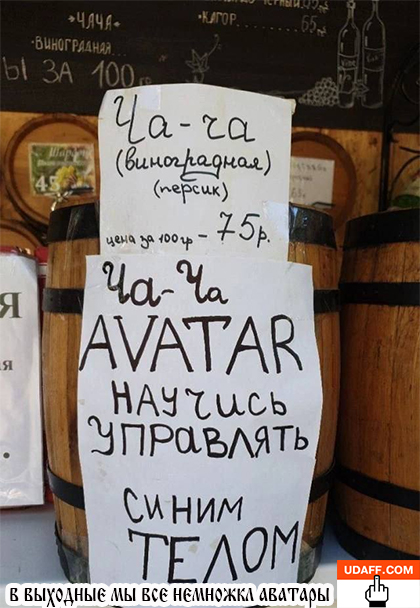 •ЧАЧА
•ВИНОГРАДНАЯ
•КАГОР
65
Ы ЗА 100гр
Ча-ча
(виноградная)
(персик)
цена за 100гр - 75р.
Ча-Ча
AVATAR
НАУЧИСЬ
УПРАВЛЯТЬ
СИНИМ
ТЕЛОМ
Я
я
UDAFF.COM
В ВЫХОДНЫЕ МЫ ВСЕ НЕМНОЖКА АВАТАРЫ